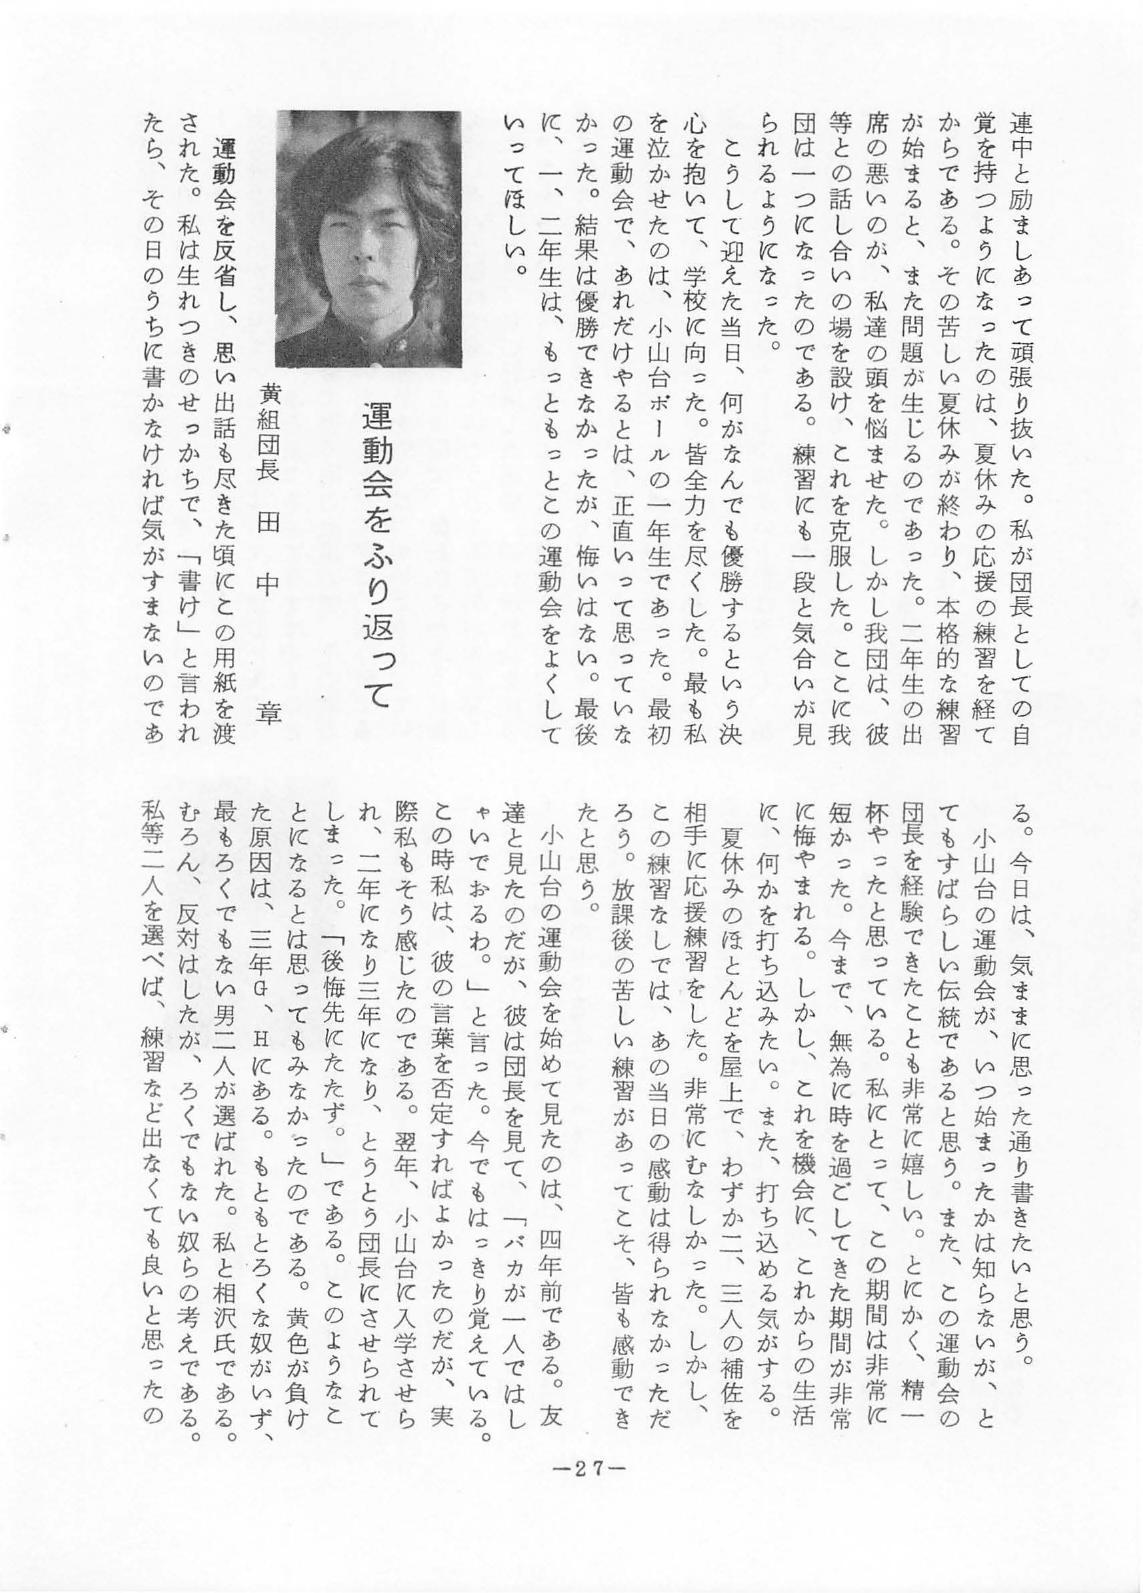 連中と励ましあって頑張り抜いた。私が団長としての自
覚を持つようになったのは、夏休みの応援の練習を経て
からである。その苦しい夏休みが終わり、本格的な練習
が始まると、また問題が生じるのであった。二年生の出
席の悪いのが、私達の頭を悩ませた。しかし我団は、彼
等との話し合いの場を設け、これを克服した。ここに我
団は一つになったのである。練習にも一段と気合いが見
られるようになった。
こうして迎えた当日、何がなんでも優勝するという決
心を抱いて、学校に向った。皆全力を尽くした。最も私
を泣かせたのは、小山台ボールの一年生であった。最初
の運動会で、あれだけやるとは、正直いって思っていな
かった。結果は優勝できなかったが、悔いはない。最後
に、一、二年生は、もっともっとこの運動会をよくして
いってほしい。
運動会をふり返って
黄組団長 田中 章
運動会を反省し、思い出話も尽きた頃にこの用紙を渡
された。私は生れつきのせっかちで、「書け」と言われ
たら、その日のうちに書かなければ気がすまないのであ
る。今日は、気ままに思った通り書きたいと思う。
小山台の運動会が、いつ始まったかは知らないが、と
てもすばらしい伝統であると思う。また、この運動会の
団長を経験できたことも非常に嬉しい。とにかく、精一
杯やったと思っている。私にとって、この期間は非常に
短かった。今まで、無為に時を過ごしてきた期間が非常
に悔やまれる。しかし、これを機会に、これからの生活
に、何かを打ち込みたい。また、打ち込める気がする。
夏休みのほとんどを屋上で、わずか二、三人の補佐を
相手に応援練習をした。非常にむなしかった。しかし、
この練習なしでは、あの当日の感動は得られなかっただ
ろう。放課後の苦しい練習があってこそ、皆も感動でき
たと思う。
小山台の運動会を始めて見たのは、四年前である。友
達と見たのだが、彼は団長を見て、「バカが一人ではし
ゃいでおるわ。」と言った。今でもはっきり覚えている。
この時私は、彼の言葉を否定すればよかったのだが、実
際私もそう感じたのである。翌年、小山台に入学させら
れ、二年になり三年になり、とうとう団長にさせられて
しまった。「後悔先にたたず。」である。このようなこ
とになるとは思ってもみなかったのである。黄色が負け
た原因は、三年G、Hにある。もともとろくな奴がいず、
最もろくでもない男二人が選ばれた。私と相沢氏である。
むろん、反対はしたが、ろくでもない奴らの考えである。
私等二人を選べば、練習など出なくても良いと思ったの
—27—